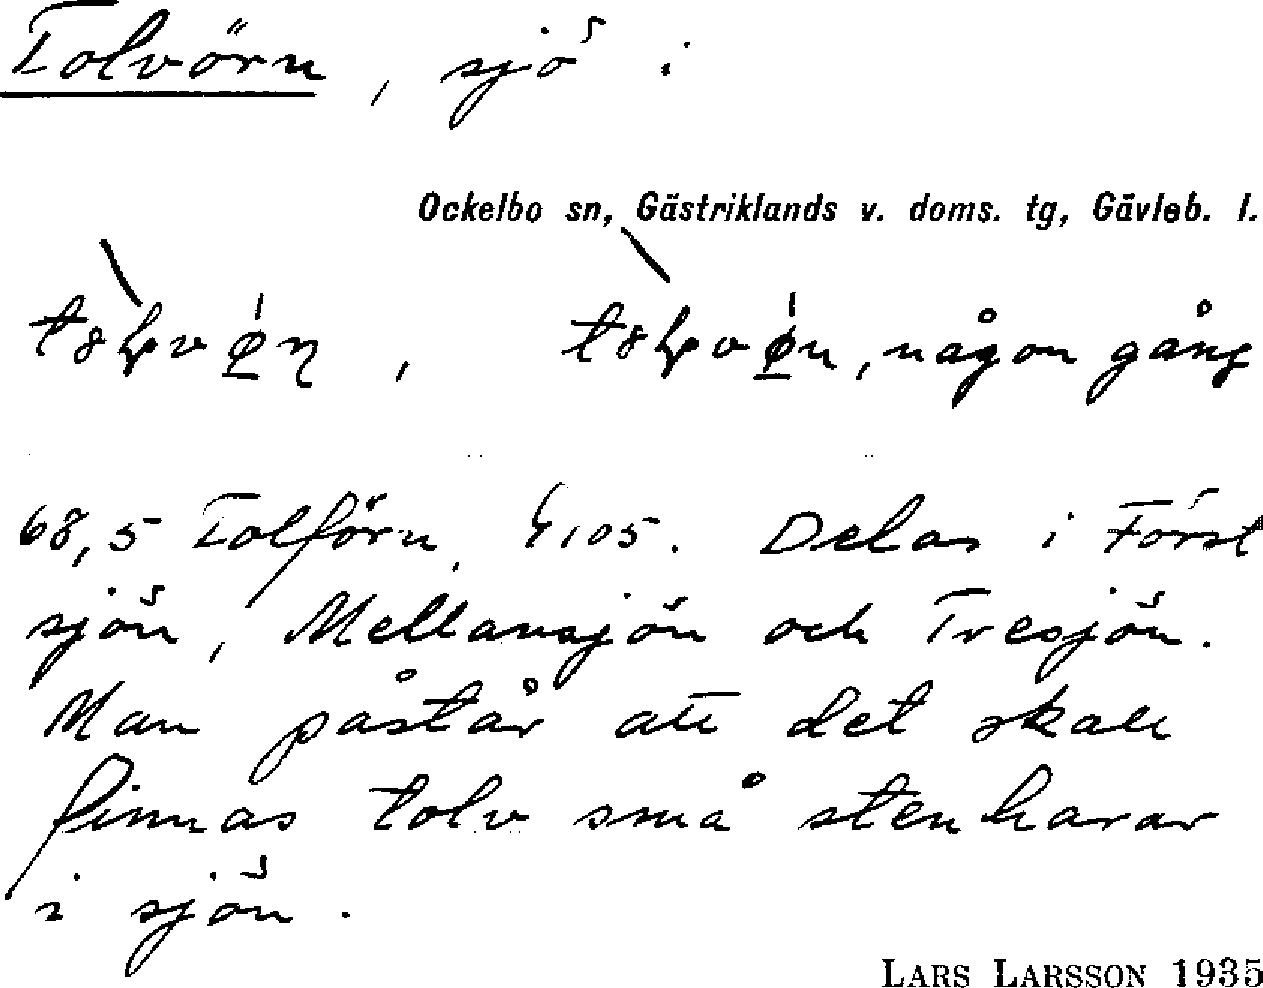 Tolvörn, sjö i
Ockelbo sn, Gästriklands v. doms. tg, Gävleb. l.
, någon gång
68,5 Tolförn, 4105. Delas i Först
sjön, Mellansjön och Tresjön.
Man påstår att det skall
finnas tolv små stenharar
i sjön.
LARS LARSSON 1935